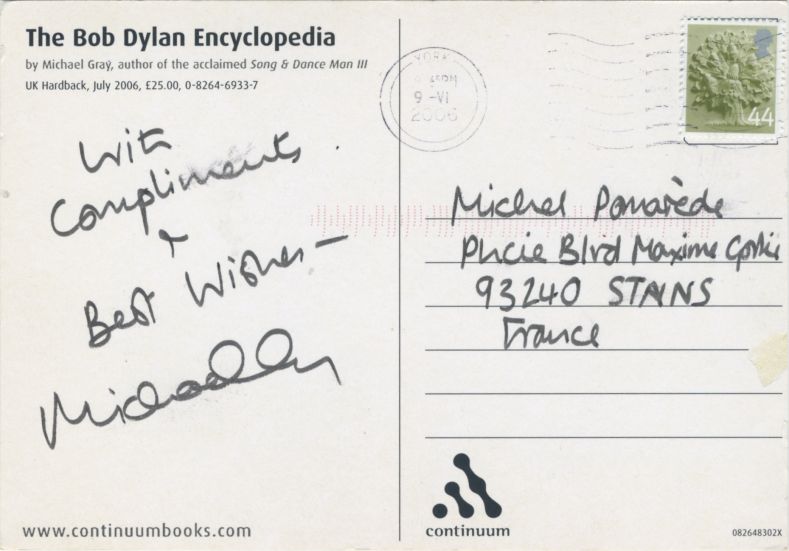 The Bob Dylan Encyclopedia
by Michael Gray, author of the acclaimed Song & Dance Man III
UK Hardback, July 2006, £25.00, 0-8264-6933-7
With
Compliments
+
Best Wishes—
YORK
9 -VI
2006
44
Michel Pomarède
Blvd Maxime
93240 STAINS
France
continuum
www.continuumbooks.com
082648302X